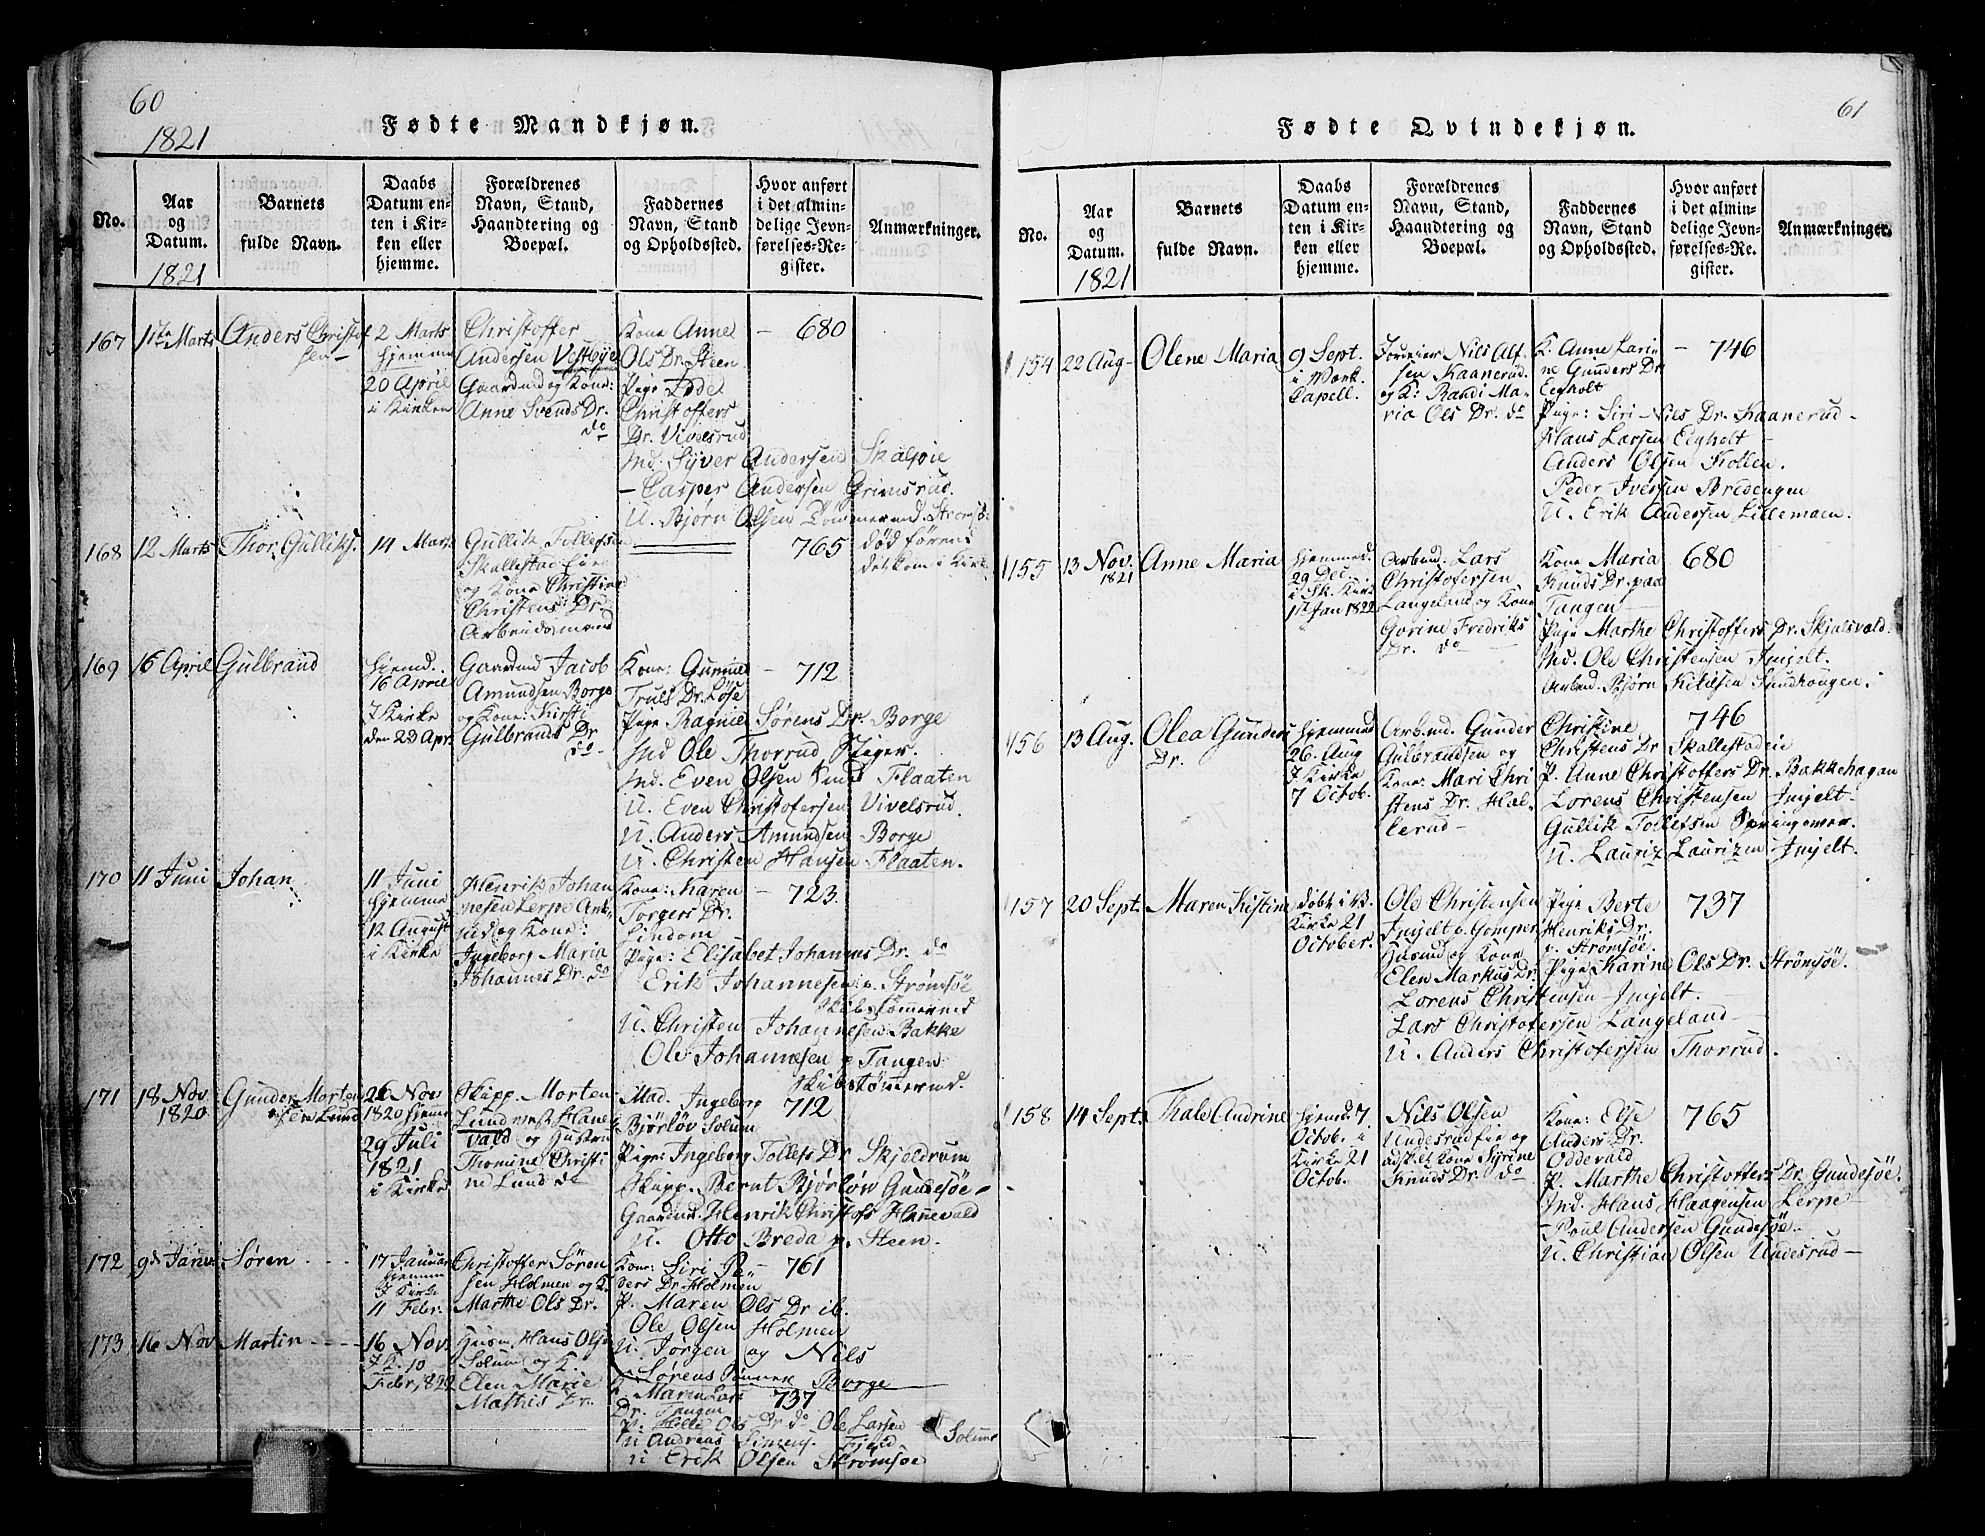 60
1821
Fødte Mandkjøn.
No.
Aar
og
Datum.
1821
Barnets
fulde Navn.
Daabs
Datum en-
ten i Kir-
ken eller
hjemme.
Forældrenes
Navn, Stand,
Haandtering og
Boepæl.
Faddernes
Navn, Stand
og Opholdssted.
Hvor anført
i det almin-
delige Jevn-
førelses-Re-
gister.
Anmærkninger.
167
11te Marts
Anders Christof
sen
2 Marts
hjemme
20 April
i Kirken
Christoffer
Andersen Vestbye
Gaardmd og Kone:
Anne Svends Dr.
do
Kone Anne
Ols Dr. Steen
Pige
Christoffers
Dr. Vivelsrud
Md. Syver Andersen Skalsie
Casper Andersen Grimsrud.
U. Bjørn Olsen
680
168
12 Marts
Thor Gulliks.
14 Mar
Gullik Tollefsen
Skallestad Eie
og Kone Christine
Christens Dr.
Arbeidsmand
765
død føren
det kom i Kirk
169
16 April
Gulbrand
hjemd.
16 April
I Kirke
den 23 Apr.
Gaardmd Jacob
Amundsen Borge
og Kone: Kirsti
Gulbrands Dr
do
Kone: Gunnild
Truls Dr. Løse
Pige Ragnild Sørens Dr. Borge
Md Ole Thorrud Niger
Md. Even Olsen Flaaten
U. Even Christofersen Vivelsrud
U. Anders Amundsen Borge
U. Christen Hansen Flaaten.
712
170
11 Juni
Johan
11 Juni
hjemme
12 August
i Kirke
Henrik Johan
nesen Lerpe Arb.
md og Kone:
Ingeborg Maria
Johannes Dr. do
Kone: Karen
Torgers Dr.
Lindom
Pige: Elisabet Johannes Dr. do
Erik Johannesen p. Strømsöe
Skibstømermd
U. Christen Johannesen Bakke
Ole Johannesen p Tangen
Skibstømermd.
723
171
18 Nov
1820
Gunder Morten
sen Lund
26 Nov
1820 hjemme
29 Juli
1821
i Kirke
Skipp. Morten
Lund Hane
vald og Hustru
Thomine Christi
ne Lund do
Mad. Ingeborg
Bjørløv Solum
Pige: Ingeborg Tollefs Dr Skjoldrum
Skipp. Bernt Bjørløw Gundesöe
Gaardmd. Henrik Christofs Hanevald
U. Otto Breda p. Steen.
712
172
9de Janv
Søren
17 Januar
hjemme
I Kirke
11 Febr.
Christoffer Søren
sen Holmen og K.
Marthe Ols Dr.
Kone: Siri Pe
ders Dr Holmen
P. Maren Ols Dr ib.
Ole Olsen Holmen
U. Jørgen og Nils
Sørens Sønner Borge
761
173
16 Nov
Martin
16 Nov.
I K. 10
Febr, 1822
Husm Hans Olsen
Solum og K.
Elen Marie
Mathis Dr.
K. Maren Lars
Dr. Tangen
P. Helle Ols Dr do Ole Larsen
U Andreas Simens. Fjeld Solum
U Erik Olsen Strømsøe
737
61
Fødte Qvindekjøn.
No.
Aar
og
Datum.
1821
Barnets
fulde Navn.
Daabs
Datum en-
ten i Kir-
ken eller
hjemme.
Forældrenes
Navn, Stand,
Haandtering og
Boepæl.
Faddernes
Navn, Stand
og Opholdssted.
Hvor anført
i det almin-
delige Jevn-
førelses-Re-
gister.
Anmærkninger.
154
22 Aug
Olene Maria
9 Sept.
i Værk
Capell.
Nils Alf
sen Kaanerud
og K: Randi Ma
ria Ols Dr. do
K. Anne Lari
ne Gunders Dr
Eegholt
Pige: Siri Nils Dr. Kaanerud
Hans Larsen Eegholt
Anders Olsen Kollen.
Peder Iversen Bredengen
U. Erik Andersen Lillemoen.
746
155
13 Nov.
1821
Anne Maria
hjemmed.
29 Dec.
i Sk. Kirk
1st Jan 1822
Arbmd: Lars
Christofersen
Langeland og Kone
Gorine Fredriks
Dr. do
Kone Maria
Knuds Dr. paa
Tangen
Pige Marthe Christoffers Dr. Skjelsvald.
Md. Ole Christensen Injelt.
Arbmd. Bjørn Kittilsen Sundhougen.
680
156
13 Aug.
Olea Gunders
Dr.
hjemmed
26. Aug
I Kirke
7 Octob.
Arbmd. Gunder
Gulbrandsen og
Kone: Mari Chri
stens Dr. Hal
lerud
Christine
Christens Dr Skallestadeie
P. Anne Christoffers Dr. Bakkehagan
Lorens Christensen Injelt
Gullik Tollefsen Springemoer.
U. Lauriz Laurizen Injelt.
746
157
20 Sept.
Maren Kistine
døbt i B.
Kirke 21
October.
Ole Christensen
Injelt p. Gomper
Husmd og Kone
Elen Markus Dr.
Pige Berte
Henriks Dr.
p. Strömsöe.
Pige Karine Ols Dr. Strømsöe.
Lorens Christensen Injelt.
Lars Christofersen Langeland
U. Anders Christofersen Thorrud.
737
158
14 Sept.
Thale Andrine
hjemd. 7
Octob. i
Kirke 21
Octob.
Nils Olsen
Undesrud eie og
adskilt Kone Syrine
Knuds Dr. do
Kone: Else
Anders Dr.
Oddevald
P. Marthe Christoffers Dr. Gundesöe.
Md. Hans Haagensen Lerpe
Poul Andersen Gundesöe
U. Christian Olsen Undesrud
765